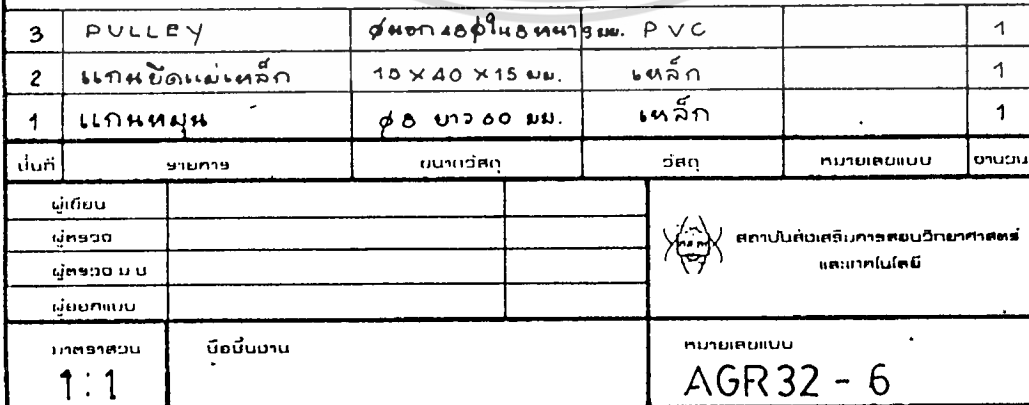 3 PULLEY φนอก 48 φใน 8 หนา 9 มม. PVC 1
2 แกนยึดแม่เหล็ก 10 × 40 × 15 มม. เหล็ก 1
1 แกนหมุน φ 8 ยาว 60 มม. เหล็ก 1
ชิ้นที่ รายการ ขนาดวัสดุ วัสดุ หมายเลขแบบ จำนวน
ผู้เขียน
ผู้ตรวจ
สถาบันส่งเสริมการสอนวิทยาศาสตร์
และเทคโนโลยี
ผู้ตรวจ ม บ
ผู้ออกแบบ
มาตราส่วน ชื่อชิ้นงาน หมายเลขแบบ
1:1 AGR 32 - 6